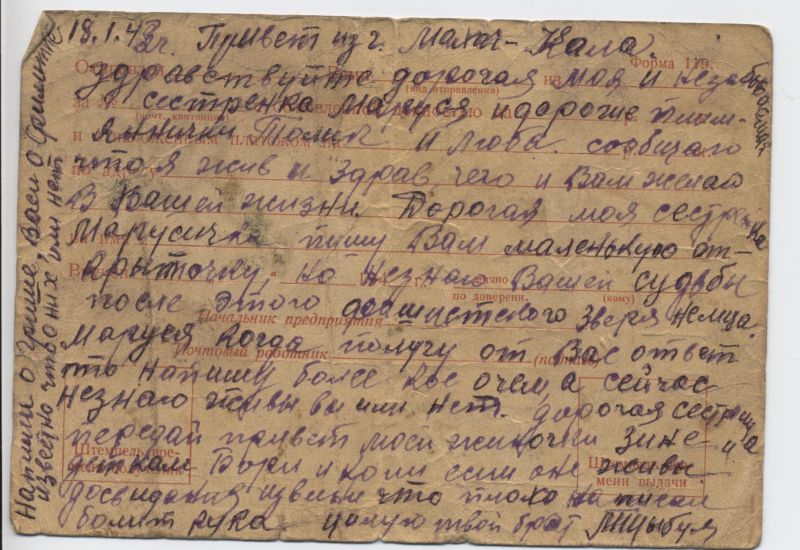 18.1.43 г. Привет из г. Махач-Кала.
Форма 119.
Здравствуйте дорогая моя и незабываемая
(вид отправления)
за №
сестренка Маруся и дорогие плем-
(почт. квитанции)
янички Толик и Люба. сообщаю
по адресу
что я жив и здрав, чего и Вам желаю
В Вашей жизни. Дорогая моя сестренка
на имя
Марусичка пишу Вам маленькую от-
крыточку, но незнаю Вашей судьбы
лично
по доверен.
(кому)
после этого фашистского зверя немца.
Начальник предприятия
Маруся когда получу от Вас ответ
Почтовый работник
(подпись)
то напишу более все очем а сейчас
незнаю живы вы или нет. дорогая сестрица
передай привет моей жиночки Зине и
деткам Бори и коли если оне живы
Штемпель пре-
Штемпель
мени выдачи
досвидания извени что плохо написал
болит рука целую твой брат
Напиши о Грише, Васи о
известно что о них или нет